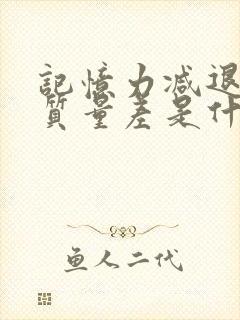 記憶力減退
質量差是什
鱼人二代